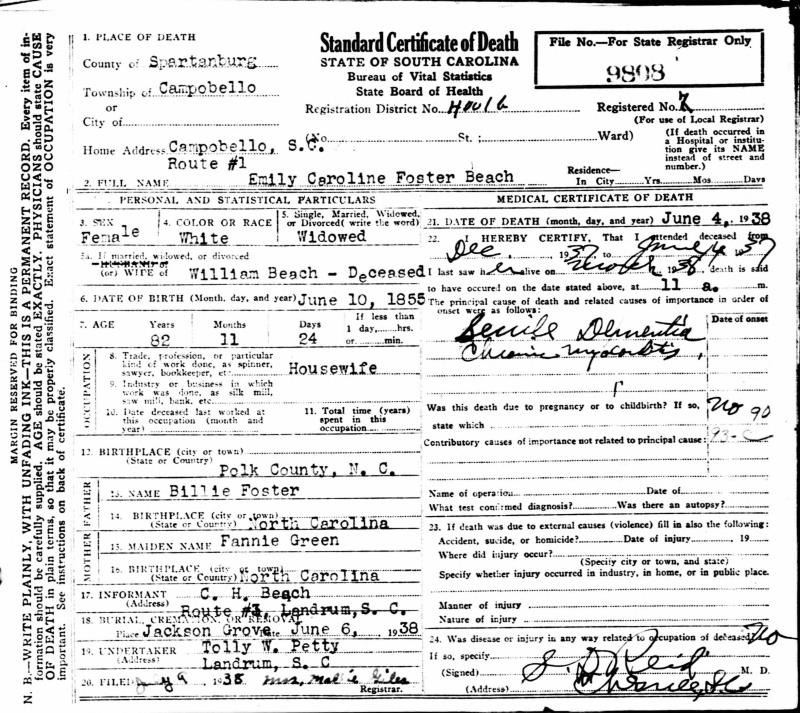 MARGIN RESERVED FOR BINDING
N. B.—WRITE PLAINLY, WITH UNFADING INK—THIS IS A PERMANENT RECORD. Every item of in-
formation should be carefully supplied. AGE should be stated EXACTLY. PHYSICIANS should state CAUSE
OF DEATH in plain terms, so that it may be properly classified. Exact statement of OCCUPATION is very
important. See instructions on back of certificate.
Standard Certificate of Death
STATE OF SOUTH CAROLINA
Bureau of Vital Statistics
State Board of Health
File No.—For State Registrar Only
9808
1. PLACE OF DEATH
County of Spartanburg
Township of Campobello
or
City of
Registration District No.
Registered No.
(For use of Local Registrar)
(No. St.; Ward)
(If death occurred in
a Hospital or institu-
tion give its NAME
instead of street and
number.)
Home Address Campobello, S.C.
Route #1
Residence—
In City Yrs. Mos. Days
2. FULL NAME Emily Caroline Foster Beach
PERSONAL AND STATISTICAL PARTICULARS
3. SEX
Female
4. COLOR OR RACE
White
5. Single, Married, Widowed,
or Divorced (write the word)
Widowed
5a. If married, widowed, or divorced
HUSBAND of
(or) WIFE of William Beach - Deceased
6. DATE OF BIRTH (Month, day, and year) June 10, 1855
7. AGE Years Months Days
If less than
1 day, hrs.
or min.
82 11 24
OCCUPATION
8. Trade, profession, or particular
kind of work done, as spinner,
sawyer, bookkeeper, etc. Housewife
9. Industry or business in which
work was done, as silk mill,
saw mill, bank, etc.
10. Date deceased last worked at
this occupation (month and
year)
11. Total time (years)
spent in this
occupation
12. BIRTHPLACE (city or town)
(State or Country)
Polk County, N. C.
FATHER
13. NAME Billie Foster
14. BIRTHPLACE (city or town)
(State or Country) North Carolina
MOTHER
15. MAIDEN NAME Fannie Green
16. BIRTHPLACE (city or town)
(State or Country) North Carolina
17. INFORMANT C. H. Beach
(Address) Route #3, Landrum, S. C.
18. BURIAL, CREMATION, OR REMOVAL
Place Jackson Grove Date June 6, 1938
19. UNDERTAKER Tolly W. Petty
(Address) Landrum, S. C
20. FILED July 9 1938 Mrs. Giles
Registrar.
MEDICAL CERTIFICATE OF DEATH
21. DATE OF DEATH (month, day, and year) June 4, 1938
22. I HEREBY CERTIFY, That I attended deceased from
Dec. 1937 to
I last saw her alive on 1938, death is said
to have occured on the date stated above, at 11 a. m.
The principal cause of death and related causes of importance in order of
onset were as follows:
Date of onset
Senile Dementia
Chronic Myocarditis,
Was this death due to pregnancy or to childbirth? If so, No 90
state which
Contributory causes of importance not related to principal cause: 93-C
Name of operation Date of
What test confirmed diagnosis? Was there an autopsy?
23. If death was due to external causes (violence) fill in also the following:
Accident, sucide, or homicide? Date of injury 19
Where did injury occur?
(Specify city or town, and state)
Specify whether injury occurred in industry, in home, or in public place.
Manner of injury
Nature of injury
24. Was disease or injury in any way related to occupation of deceased? No
If so, specify
(Signed) Reid M. D.
(Address)